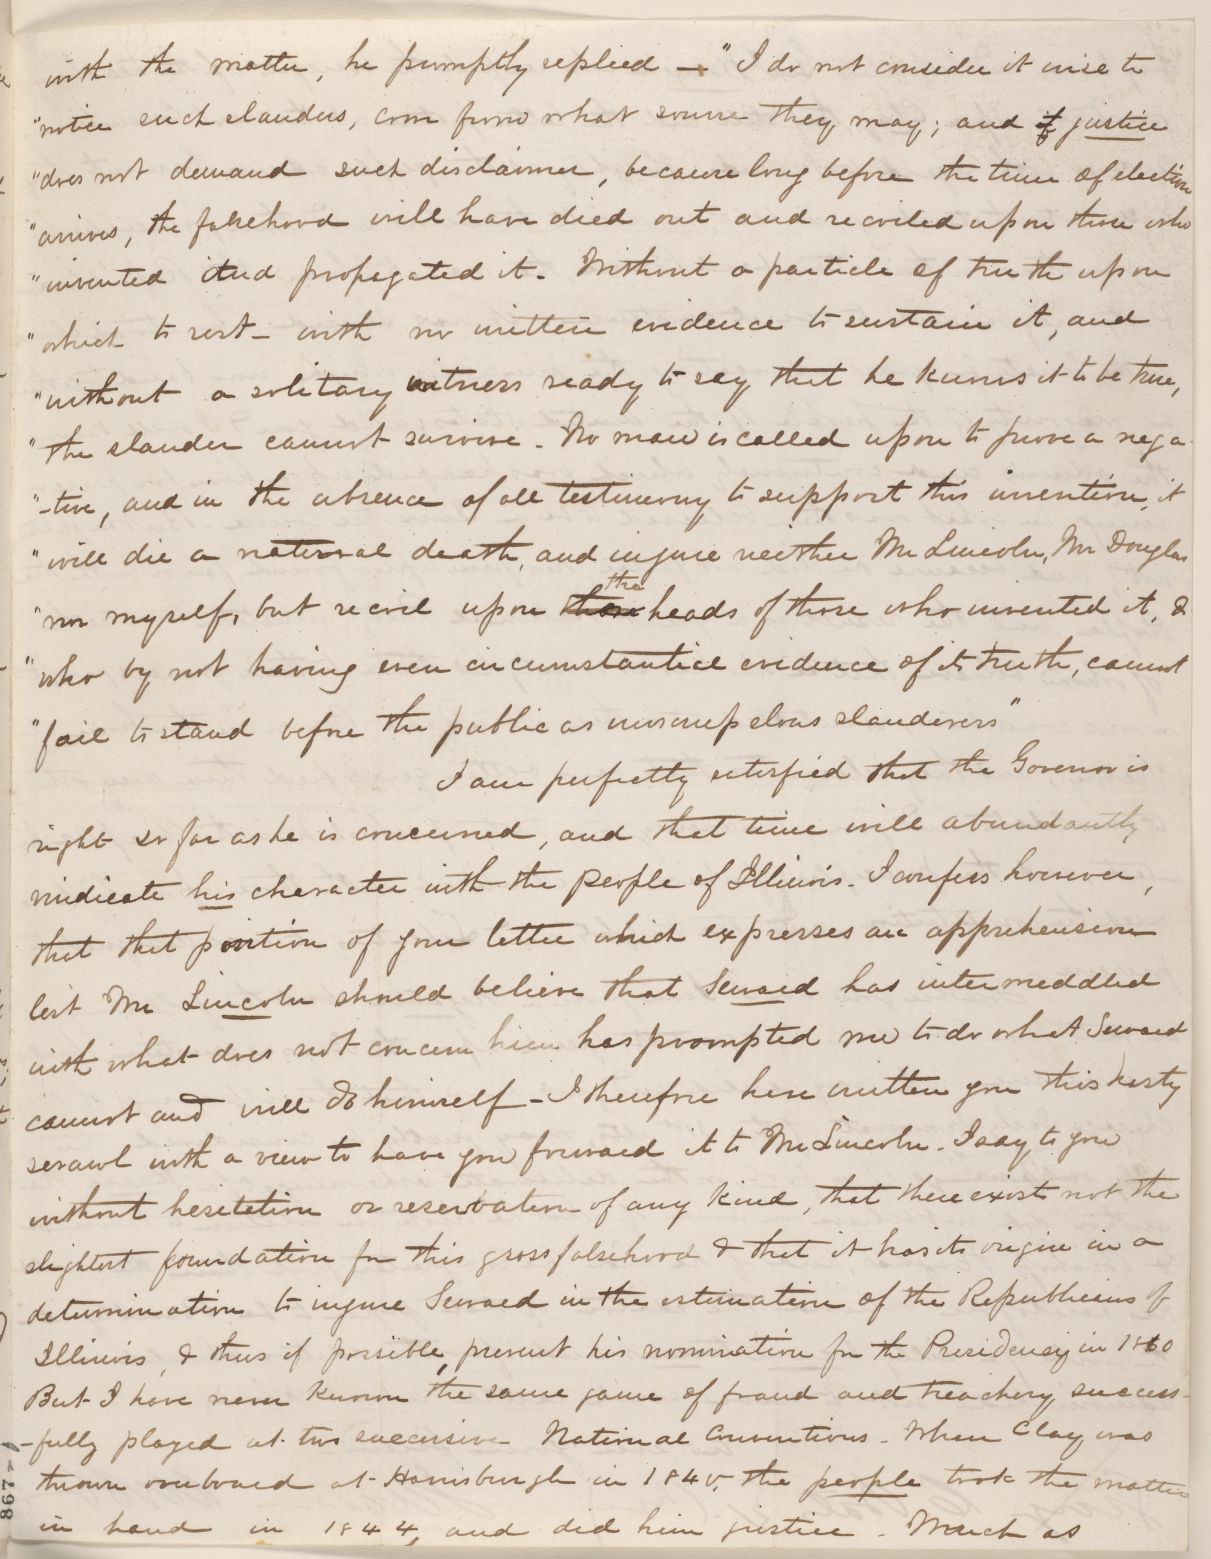 with the matter, he promptly replied — "I do not consider it wise to
"notice such slanders, come from what source they may; and if justice
"does not demand such disclaimer, because long before the time of election
"arrives, the falsehood will have died out and recoiled upon those who
"invented and propagated it. Without a particle of truth upon
"which to rest - with no written evidence to sustain it, and
"without a solitary witness ready to say that he knows it to be true,
"the slander cannot survive. No man is called upon to prove a nega-
"-tive, and in the absence of all testimony to support this invention, it
"will die a natural death, and injure neither Mr Lincoln, Mr Douglas
"nor myself, but recoil upon those the heads of those who invented it, &
"who by not having even circumstantial evidence of its truth, cannot
"fail to stand before the public as unscrupulous slanderers"
I am perfectly satisfied that the Govenor is
right so far as he is concerned, and that time will abundantly
vindicate his character with the people of Illinois. I confess however,
that that portion of your letter which expresses an apprehension
lest Mr Lincoln should believe that Seward has intermeddled
with what does not concern him has prompted me to do what Seward
cannot and will do himself - I therefore have written you this hasty
scrawl with a view to have you forward it to Mr Lincoln. I say to you
without hesitation or reservation of any kind, that there exists not the
slightest foundation for this gross falsehood & that it has its origin in a
determination to injure Seward in the estimation of the Republicans of
Illinois, & thus if possible, prevent his nomination for the Presidency in 1860
But I have never known the same game of fraud and treachery success-
-fully played at two successive National Conventions. When Clay was
thrown overboard at Harrisburgh in 1840, the people took the matter
in hand in 1844, and did him justice. Much as
867-9